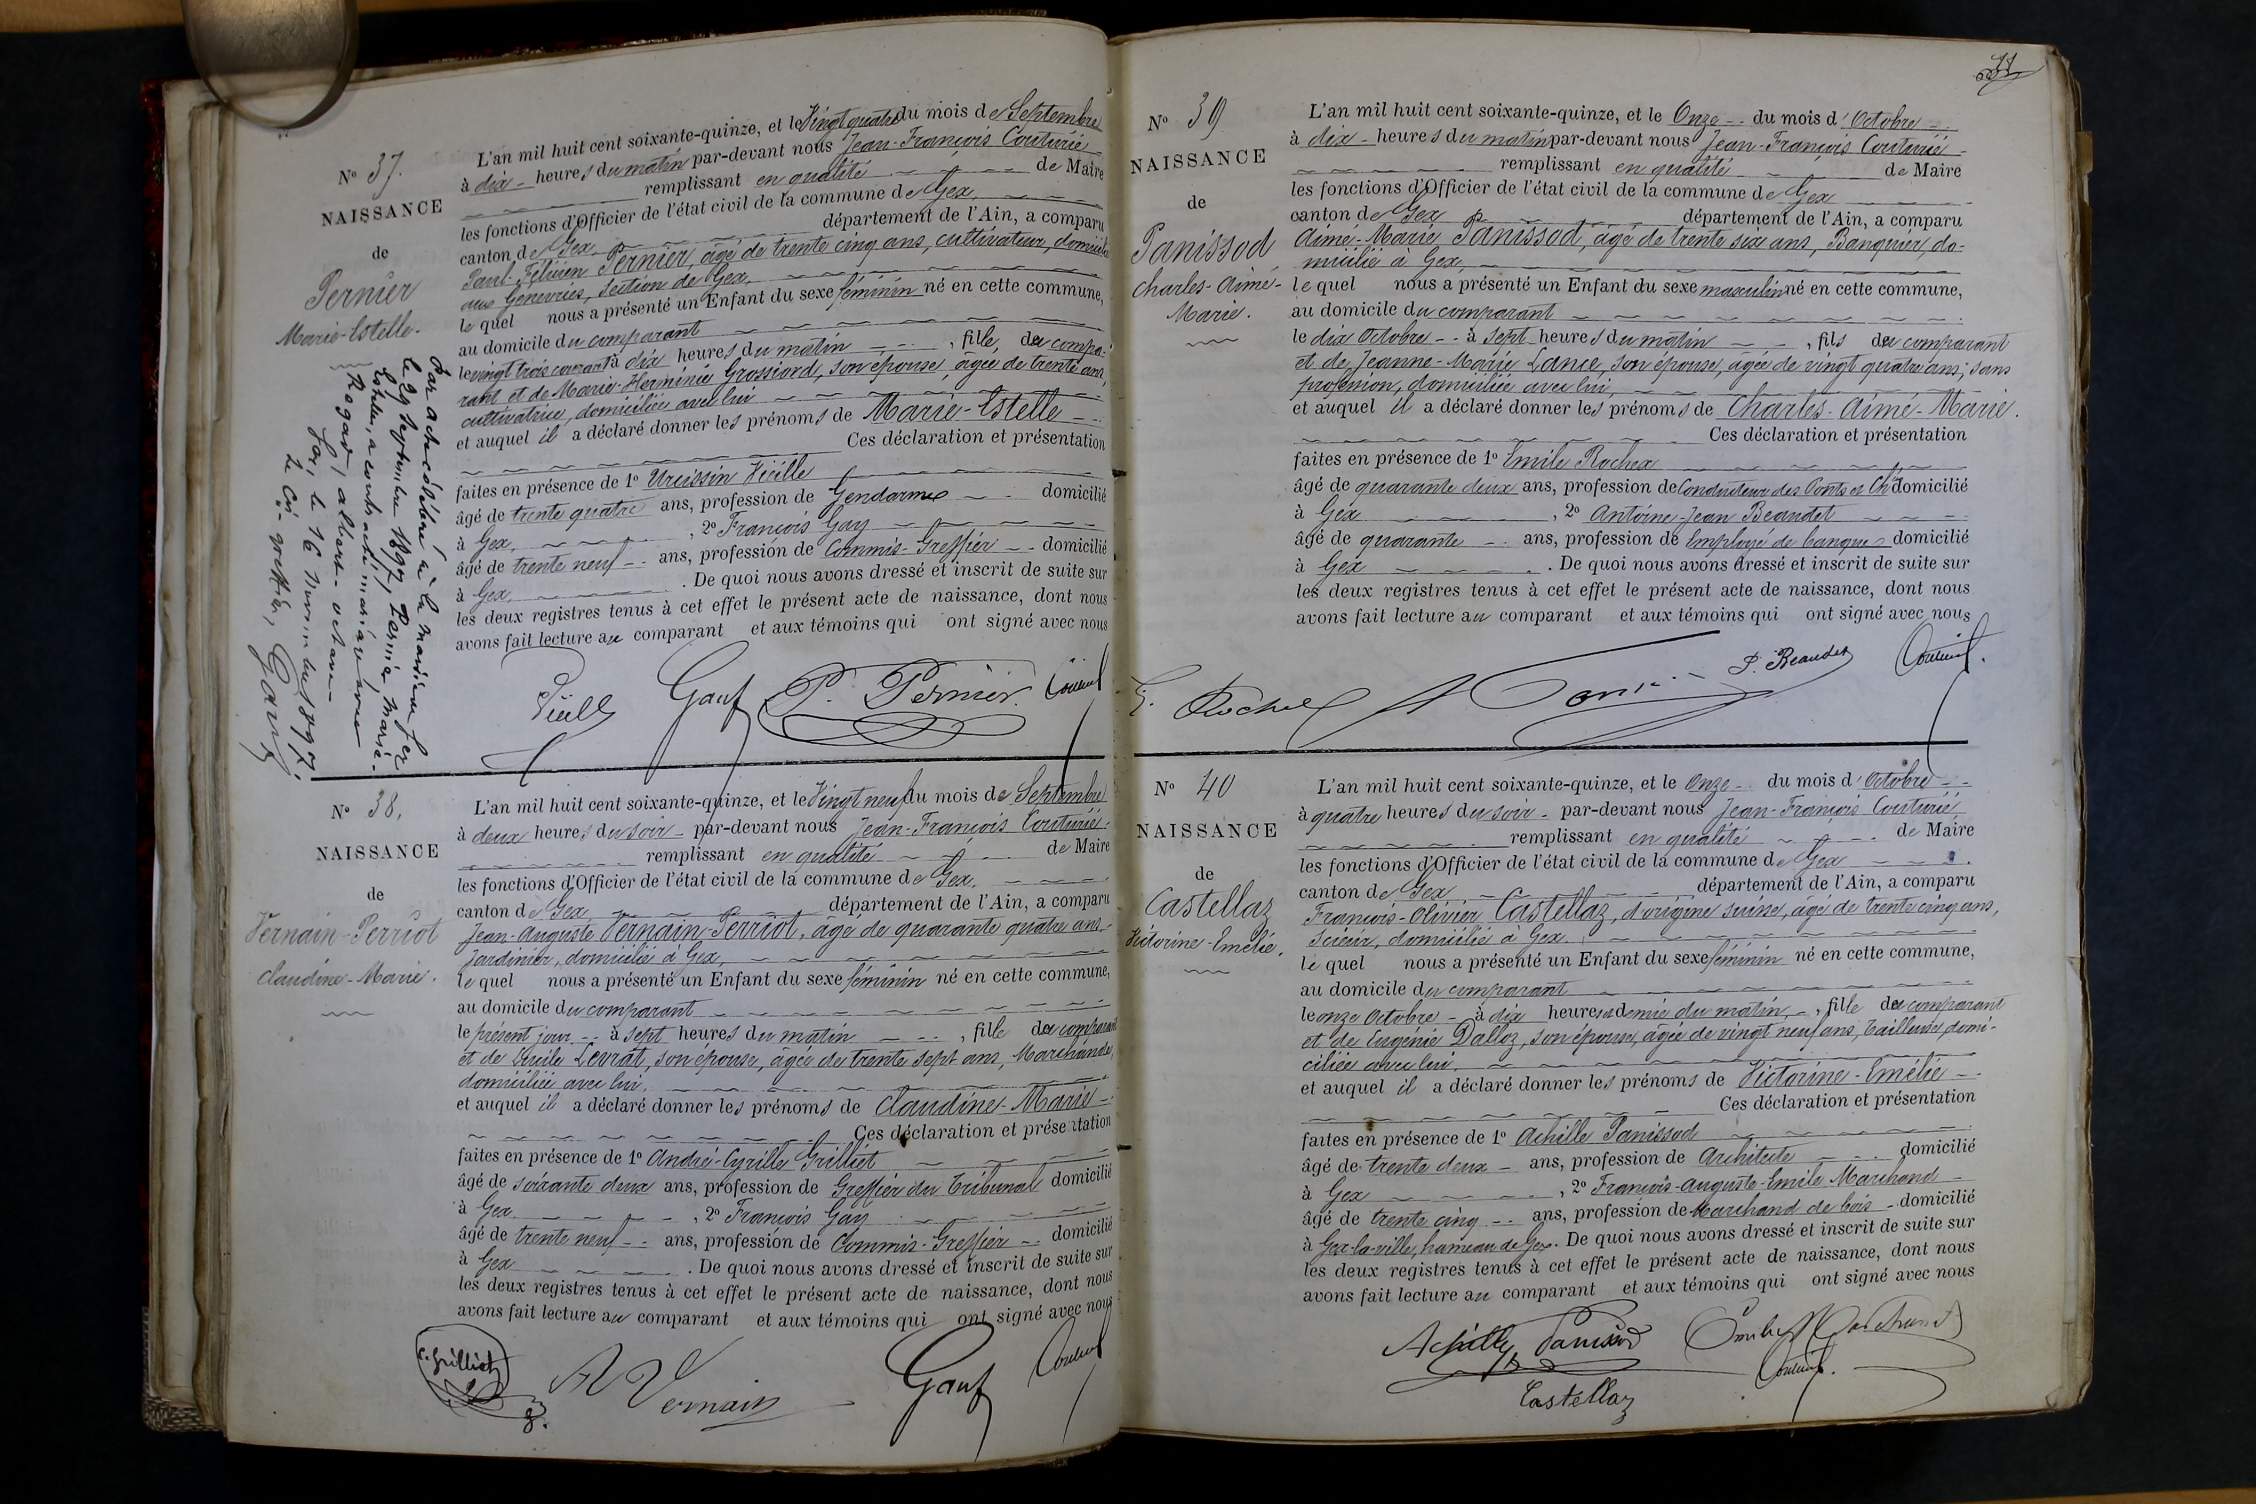 N° 37.
NAISSANCE
de
Pernier
Marie-Estelle.
Par acte célébré à la mairie de Gex
le 29 Septembre 1897, Pernier Marie-
Estelle, a contracté mariage avec
Rogard, albert-octave
Gex, le 16 novembre 1897.
Le Cis-greffier,
L'an mil huit cent soixante-quinze, et le Vingt quatre du mois de Septembre
à dix heures du matin par-devant nous Jean-François Couturié
remplissant en qualité de Maire
les fonctions d'Officier de l'état civil de la commune de Gex
canton de Gex département de l'Ain, a comparu
Paul-Félicien Pernier, âgé de trente cinq ans, cultivateur, domicilié
aux Genevriés, section de Gex,
le quel nous a présenté un Enfant du sexe féminin né en cette commune,
au domicile du comparant
le vingt trois courant à dix heures du matin , fille du compa-
rant et de Marie-Herminie Grossiord, son épouse, âgée de trente ans,
cultivatrice, domiciliée avec lui
et auquel il a déclaré donner les prénoms de Marie-Estelle
Ces déclaration et présentation
faites en présence de 1° Ursissin Vieille
âgé de trente quatre ans, profession de Gendarme domicilié
à Gex , 2° François Gay
âgé de trente neuf ans, profession de Commis-Greffier domicilié
à Gex . De quoi nous avons dressé et inscrit de suite sur
les deux registres tenus à cet effet le présent acte de naissance, dont nous
avons fait lecture au comparant et aux témoins qui ont signé avec nous
P. Pernier
N° 38.
NAISSANCE
de
Vernain-Perriot
Claudine-Marie.
L'an mil huit cent soixante-quinze, et le Vingt neuf du mois de Septembre
à deux heures du soir par-devant nous Jean-François Couturié
remplissant en qualité de Maire
les fonctions d'Officier de l'état civil de la commune de Gex.
canton de Gex département de l'Ain, a comparu
Jean-Auguste Vernain-Perriot, âgé de quarante quatre ans,
jardinier, domicilié à Gex,
le quel nous a présenté un Enfant du sexe féminin né en cette commune,
au domicile du comparant
le présent jour à sept heures du matin , fille du comparant
et de Cécile Levrat, son épouse, âgée de trente sept ans, Marchande,
domiciliée avec lui.
et auquel il a déclaré donner les prénoms de Claudine-Marie
Ces déclaration et présentation
faites en présence de 1° André-Cyrille Grilliet
âgé de soixante deux ans, profession de Greffier du Tribunal domicilié
à Gex , 2° François Gay
âgé de trente neuf ans, profession de Commis-Greffier domicilié
à Gex . De quoi nous avons dressé et inscrit de suite sur
les deux registres tenus à cet effet le présent acte de naissance, dont nous
avons fait lecture au comparant et aux témoins qui ont signé avec nous
C. Grilliet A Vernain
N° 39
NAISSANCE
de
Panissod
Charles-Aimé-
Marie.
L'an mil huit cent soixante-quinze, et le Onze du mois d'Octobre
à dix heures du matin par-devant nous Jean-François Couturié
remplissant en qualité de Maire
les fonctions d'Officier de l'état civil de la commune de Gex
canton de Gex département de l'Ain, a comparu
Aimé-Marie Panissod, âgé de trente six ans, Banquier, do-
micilié à Gex,
le quel nous a présenté un Enfant du sexe masculin né en cette commune,
au domicile du comparant
le dix Octobre à sept heures du matin , fils du comparant
et de Jeanne-Marie Lance, son épouse, âgée de vingt quatre ans, sans
profession, domiciliée avec lui,
et auquel il a déclaré donner les prénoms de Charles-Aimé-Marie.
Ces déclaration et présentation
faites en présence de 1° Emile Rochex
âgé de quarante deux ans, profession de Conducteur des Ponts et Ch. domicilié
à Gex , 2° Antoine-Jean Beaudet
âgé de quarante ans, profession de Employé de banque domicilié
à Gex . De quoi nous avons dressé et inscrit de suite sur
les deux registres tenus à cet effet le présent acte de naissance, dont nous
avons fait lecture au comparant et aux témoins qui ont signé avec nous
E. Rochex
N° 40
NAISSANCE
de
Castellaz
Victorine-Emélie.
L'an mil huit cent soixante-quinze, et le Onze du mois d'Octobre
à quatre heures du soir par-devant nous Jean-François Couturié
remplissant en qualité de Maire
les fonctions d'Officier de l'état civil de la commune de Gex
canton de Gex département de l'Ain, a comparu
François-Olivier Castellaz, d'origine suisse, âgé de trente cinq ans,
Scieur, domicilié à Gex
le quel nous a présenté un Enfant du sexe féminin né en cette commune,
au domicile du comparant
le onze Octobre à dix heures et demie du matin, fille du comparant
et de Eugénie Dalloz, son épouse, âgée de vingt neuf ans, tailleuse, domi-
ciliée avec lui
et auquel il a déclaré donner les prénoms de Victorine-Emélie
Ces déclaration et présentation
faites en présence de 1° Achille Panissod
âgé de trente deux ans, profession de Architecte domicilié
à Gex , 2° François-Auguste-Emile Marchand
âgé de trente cinq ans, profession de Marchand de bois domicilié
à Gex-la-ville, hameau de Gex. De quoi nous avons dressé et inscrit de suite sur
les deux registres tenus à cet effet le présent acte de naissance, dont nous
avons fait lecture au comparant et aux témoins qui ont signé avec nous
Achille Panissod Emile Marchand
Castellaz